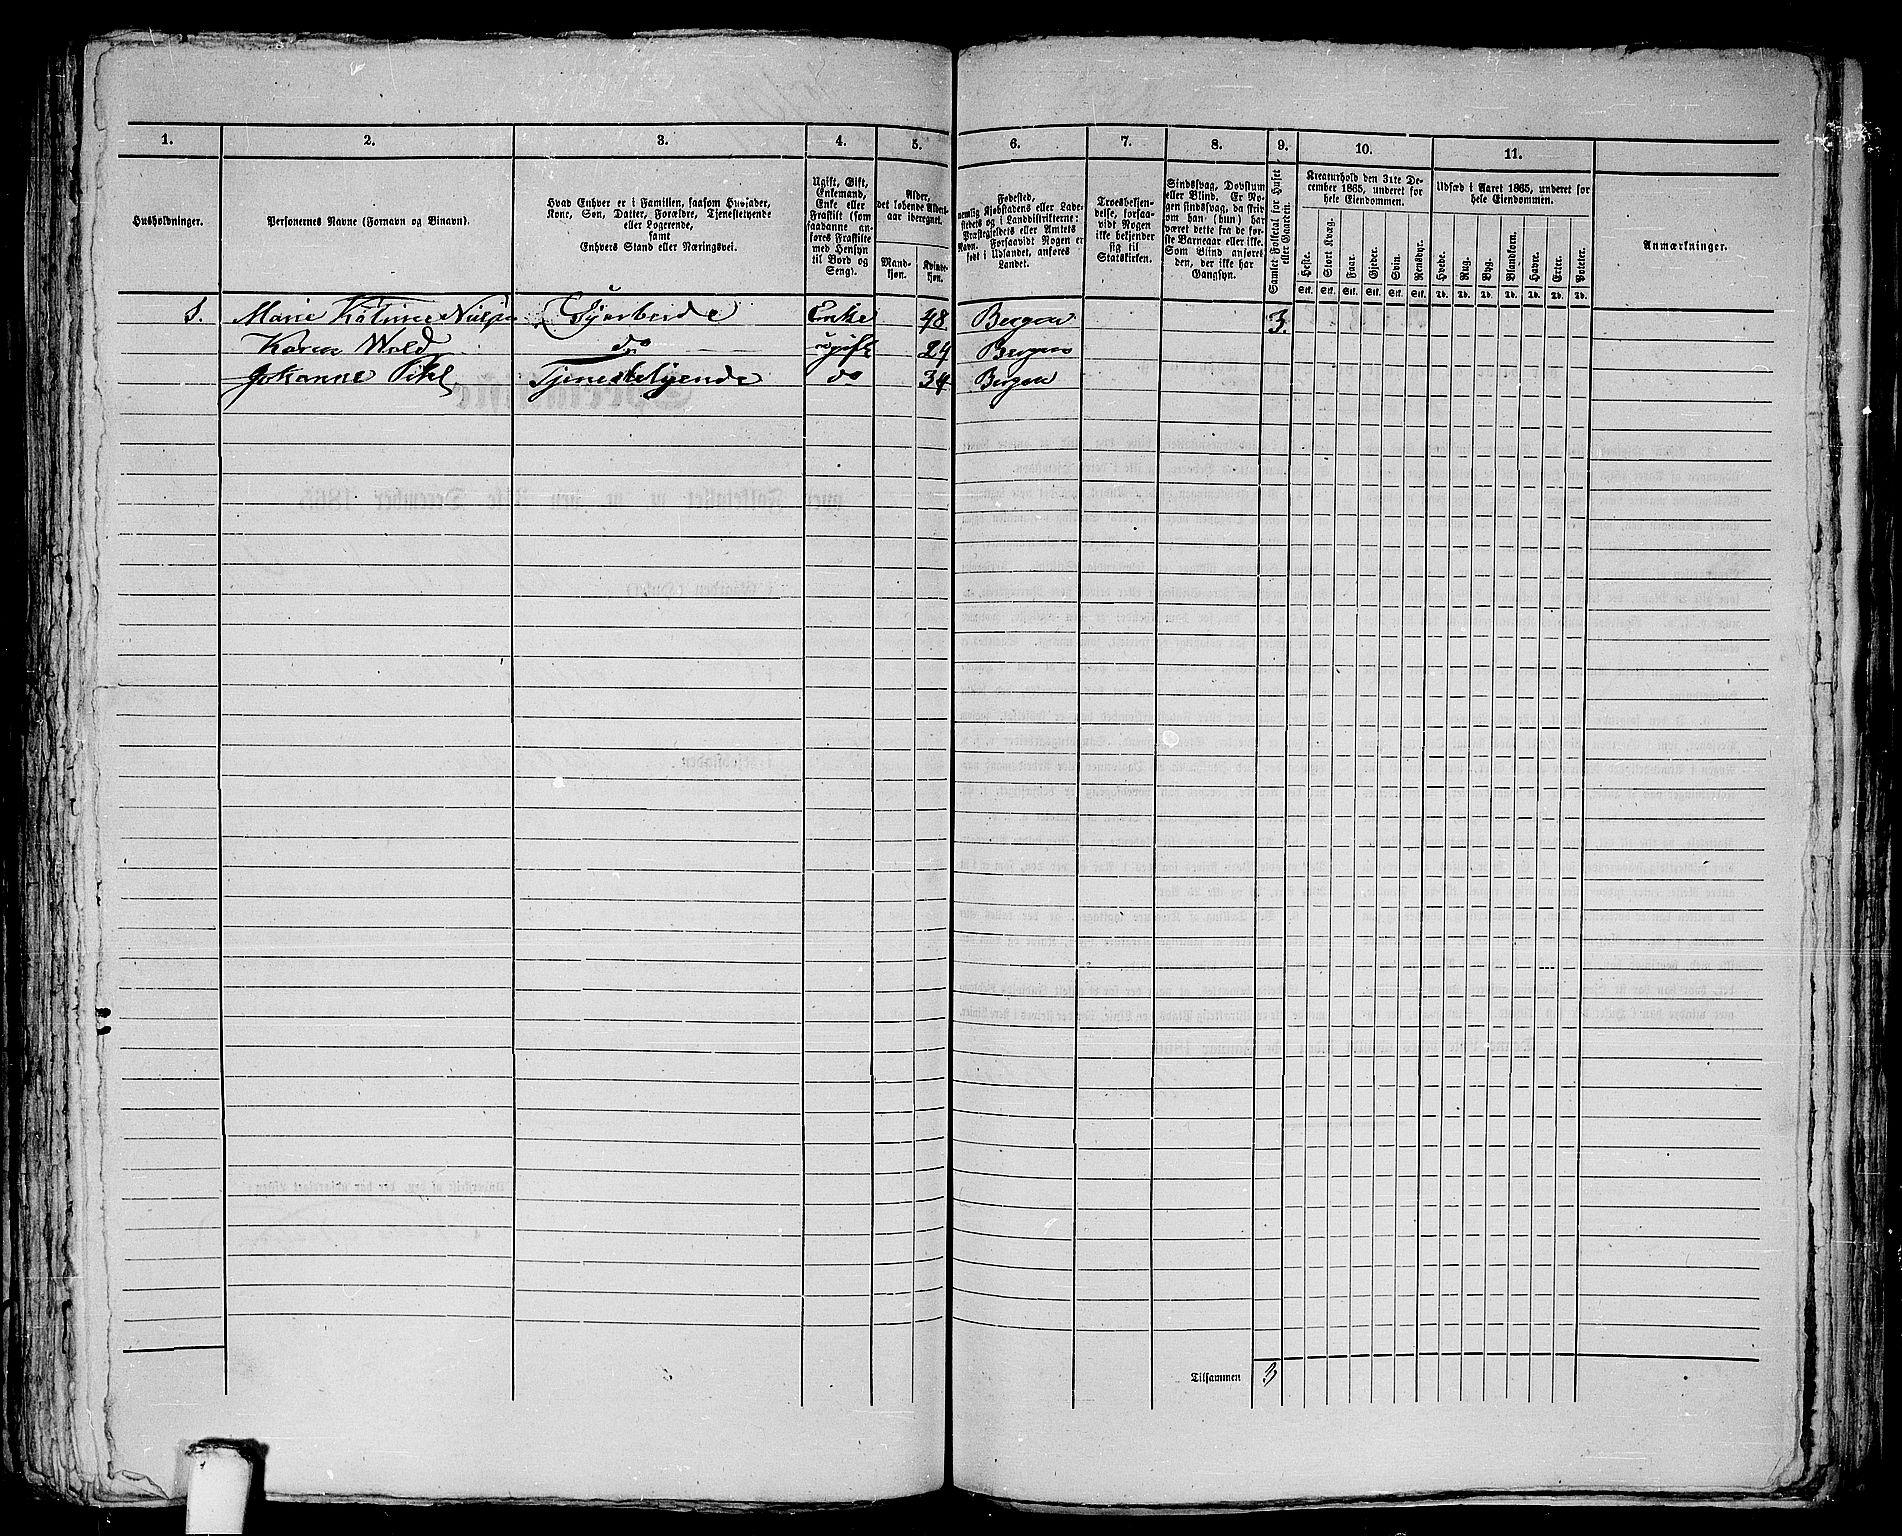 1. 2. 3. 4. 5. 6. 7. 8. 9. 10. 11.
Husholdninger.
Personernes Navne (Fornavn og Binavn).
Hvad Enhver er i Familien, saasom Huusfader,
Kone, Søn, Datter, Forældre, Tjenestetyende
eller Logerende,
samt
Enhvers Stand eller Næringsvei.
Ugift, Gift,
Enkemand,
Enke eller
Fraskilt (som
saadanne an-
føres Fraskilte
med Hensyn
til Bord og
Seng).
Alder,
det løbende Alders-
aar iberegnet.
Mand-
kjøn.
Kvinde-
kjøn.
Fødested,
nemlig Kjøbstadens eller Lade-
stedets og i Landdistrikterne:
Præstegjeldets eller Amtets
Navn. Forsaavidt Nogen er
født i Udlandet, anføres
Landet.
Troesbekjen-
delse, forsaa-
vidt Nogen
ikke bekjender
sig til
Statskirken.
Sindssvag, Døvstum
eller Blind. Er No-
gen sindssvag, da skriv
om han (hun) har
været dette fra de før-
ste Barneaar eller ikke.
Som Blind anføres
den, der ikke har
Gangsyn.
Samlet Folketal for Huset
eller Gaarden.
Kreaturhold den 31te De-
cember 1865, underet for
hele Eiendommen.
Heste. Stort Kvæg. Faar. Gjeder. Svin. Rensdyr.
Stk. Stk. Stk. Stk. Stk. Stk.
Udsæd i Aaret 1865, underet for
hele Eiendommen.
Hvede. Rug. Byg. Blandkorn. Havre. Erter. Poteter.
Td. Td. Td. Td. Td. Td. Td.
Anmærkninger.
1. Marie Enke 48 Bergen 3.
Karen Wold do ugift 24 Bergen
Johanne Tjenestetyende do 34 Bergen
Tilsammen 3